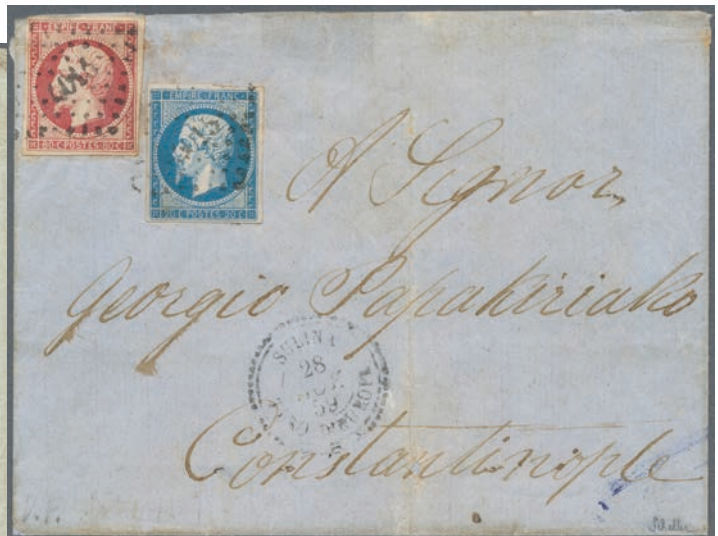 EMPIRE FRANC
80 C POSTES 80 C
EMPIRE FRANC
20 C POSTES 20 C
A Signor
Georgio Papakiriako
SULINA
28
59
D'EUROPE
Constantinople